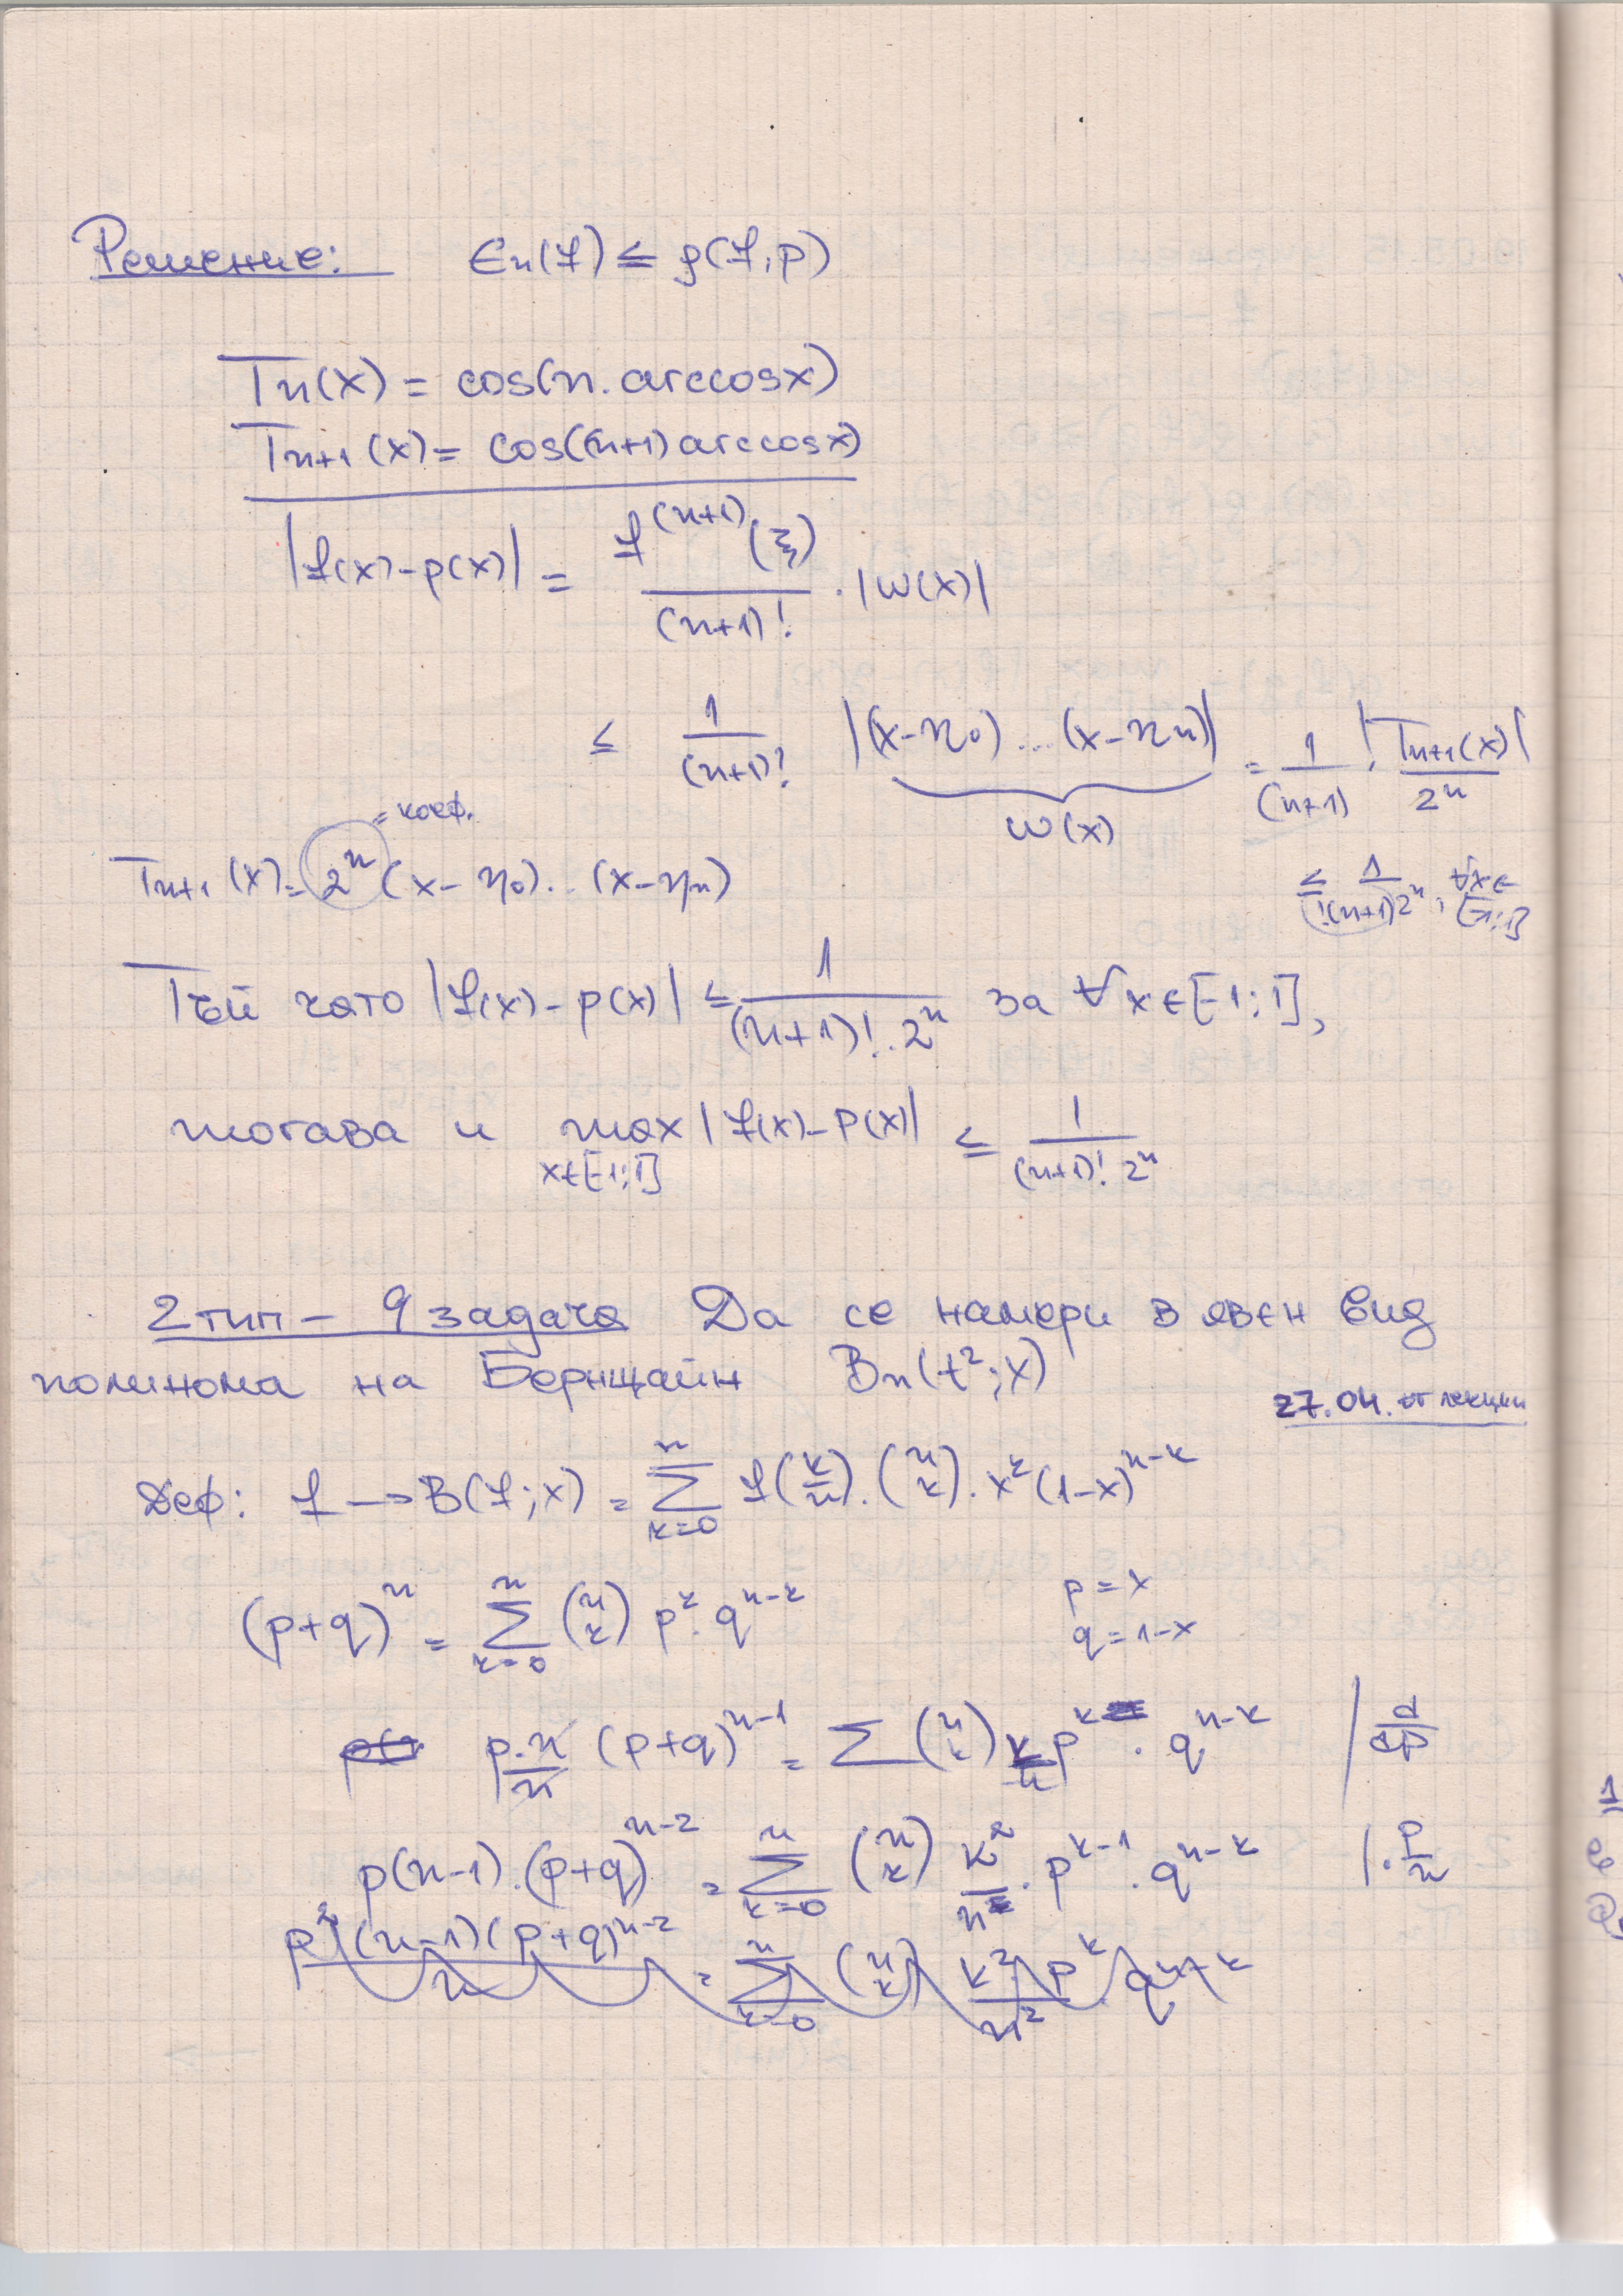 Решение: En(f) ≤ ρ(f,p)
Tn(x) = cos(n.arccosx)
Tn+1(x) = cos((n+1)arccosx)
|f(x)-p(x)| = f^(n+1)(ξ)/(n+1)! . |ω(x)|
≤ 1/(n+1)! |(x-η0)...(x-ηn)| = 1/(n+1) . |Tn+1(x)|/2^n
ω(x)
= коеф.
Tn+1(x) = 2^n (x-η0)...(x-ηn)
≤ 1/!(n+1)2^n, ∀x∈[-1;1]
Тъй като |f(x)-p(x)| ≤ 1/(n+1)!.2^n за ∀x∈[-1;1],
тогава и max |f(x)-p(x)| ≤ 1/(n+1)! 2^n
x∈[-1;1]
2 тип - 9 задача Да се намери в явен вид
полинома на Бернщайн Bn(t²;x)
27.04. от лекции
Деф: f → B(f;x) = Σ_{k=0}^{n} f(k/n).(n k).x^k(1-x)^{n-k}
(p+q)^n = Σ_{k=0}^{n} (n k) p^k.q^{n-k} p=x
q=1-x
p.n/n (p+q)^{n-1} = Σ (n k) k/n p^k . q^{n-k} | d/dp
p(n-1).(p+q)^{n-2} = Σ_{k=0}^{n} (n k) k²/n . p^{k-1} . q^{n-k} |. p/n
p²(n-1)(p+q)^{n-2}/n = Σ_{k=0}^{n} (n k) k²/n² p^k q^{n-k}